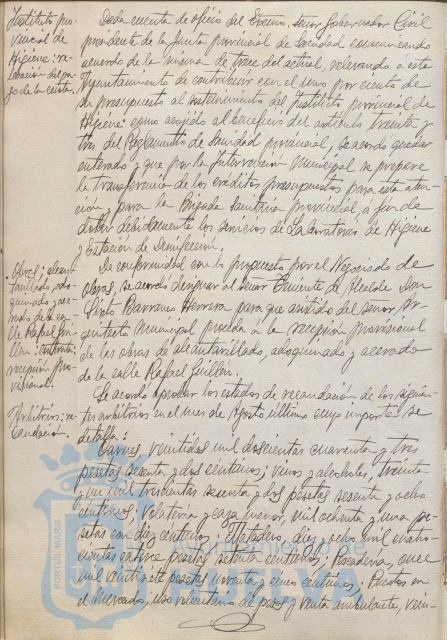 Instituto pro-
vincial de
Higiene: re-
Dada cuenta de oficio del Excmo. señor Gobernador Civil
presidente de la Junta provincial de Sanidad comunicando
acuerdo de la misma de trece del actual, relevando a este
Ayuntamiento de contribuir con el uno por ciento de
su presupuesto al sostenimiento del Instituto provincial de
Higiene como acogido al beneficio del artículo treinta y
tres del Reglamento de Sanidad provincial, se acordó quedar
enterado y que por la Intervención Municipal se prepare
la transferencia de los créditos presupuestos para esta aten-
ción y para la Brigada Sanitaria provincial, a fin de
dotar debidamente los servicios de Laboratorios de Higiene
y Estación de Desinfección.
Obras: alcan-
tarillado, ado-
quinado y ace-
rado de la ca-
lle Rafael Gui-
llén:
recepción pro-
visional.
De conformidad con lo propuesto por el Negociado de
Obras, se acordó designar al señor Teniente de Alcalde Don
Sixto Barranco Herrera para que asistido del señor Ar-
quitecto Municipal proceda a la recepción provisional
de las obras de alcantarillado, adoquinado y acerado
de la calle Rafael Guillén.
Arbitrios: re-
caudación.
Se acordó aprobar los estados de recaudación de los siguien-
tes arbitrios en el mes de Agosto último cuyo importe se
detalla:
Carnes, veintidos mil doscientas cuarenta y tres
pesetas sesenta y dos centimos; vinos y alcoholes, treinta
y un mil trescientas sesenta y dos pesetas sesenta y ocho
centimos; volatería y caza menor, mil ochenta y una pe-
setas con diez centimos; Matadero, diez y ocho mil cuatro-
cientas catorce pesetas setenta centimos; Pescadería, once
mil veintisiete pesetas noventa y cinco centimos; Puestos en
el Mercado, uso voluntario de pesos y venta ambulante, vein-
PORTUS MARIS
Ayuntamiento de
HUELVA